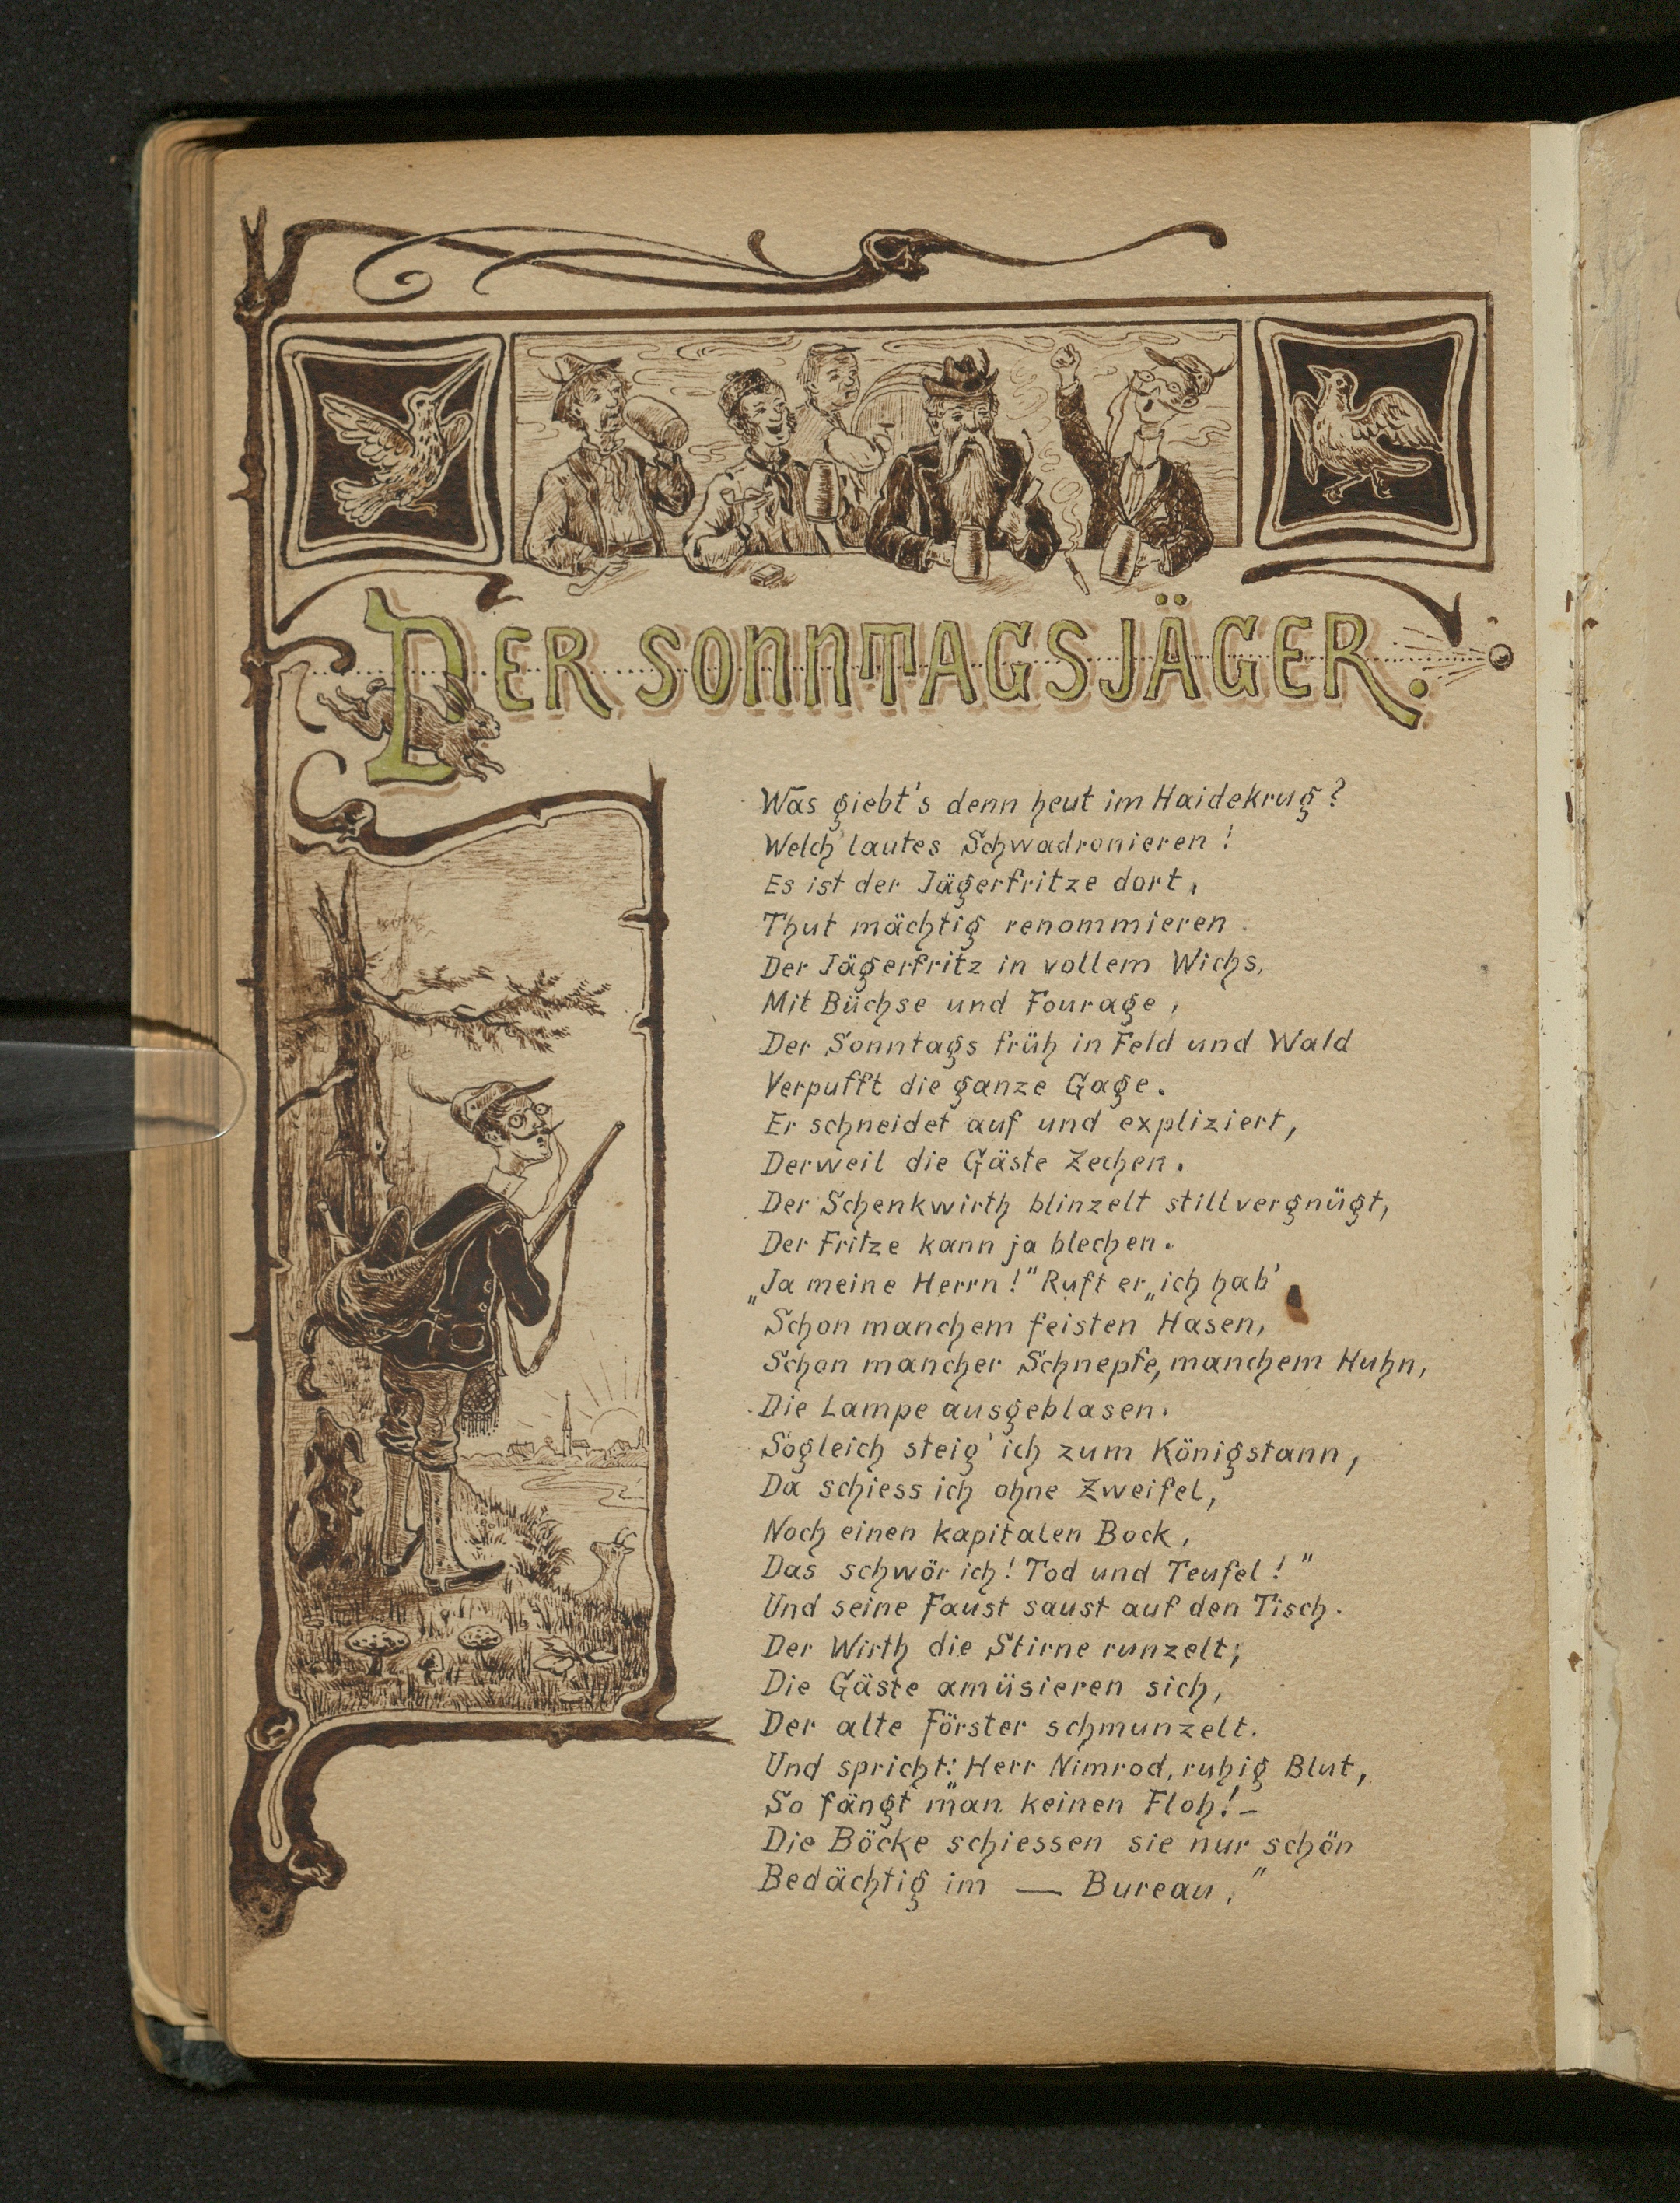 DER SONNTAGSJÄGER.
Was giebt's denn heut im Haidekrug?
Welch' lautes Schwadronieren!
Es ist der Jägerfritze dort,
Thut mächtig renommieren.
Der Jägerfritz in vollem Wichs,
Mit Büchse und Fourage,
Der Sonntags früh in Feld und Wald
Verpufft die ganze Gage.
Er schneidet auf und expliziert,
Derweil die Gäste zechen.
Der Schenkwirth blinzelt stillvergnügt,
Der Fritze kann ja blechen.
„Ja meine Herrn!" Ruft er „ich hab'
Schon manchem feisten Hasen,
Schon mancher Schnepfe, manchem Huhn,
Die Lampe ausgeblasen.
Sogleich steig' ich zum Königstann,
Da schiess ich ohne Zweifel,
Noch einen kapitalen Bock,
Das schwör ich! Tod und Teufel!"
Und seine Faust saust auf den Tisch.
Der Wirth die Stirne runzelt;
Die Gäste amüsieren sich,
Der alte Förster schmunzelt.
Und spricht: „Herr Nimrod, ruhig Blut,
So fängt man keinen Floh! –
Die Böcke schiessen sie nur schön
Bedächtig im — Bureau."